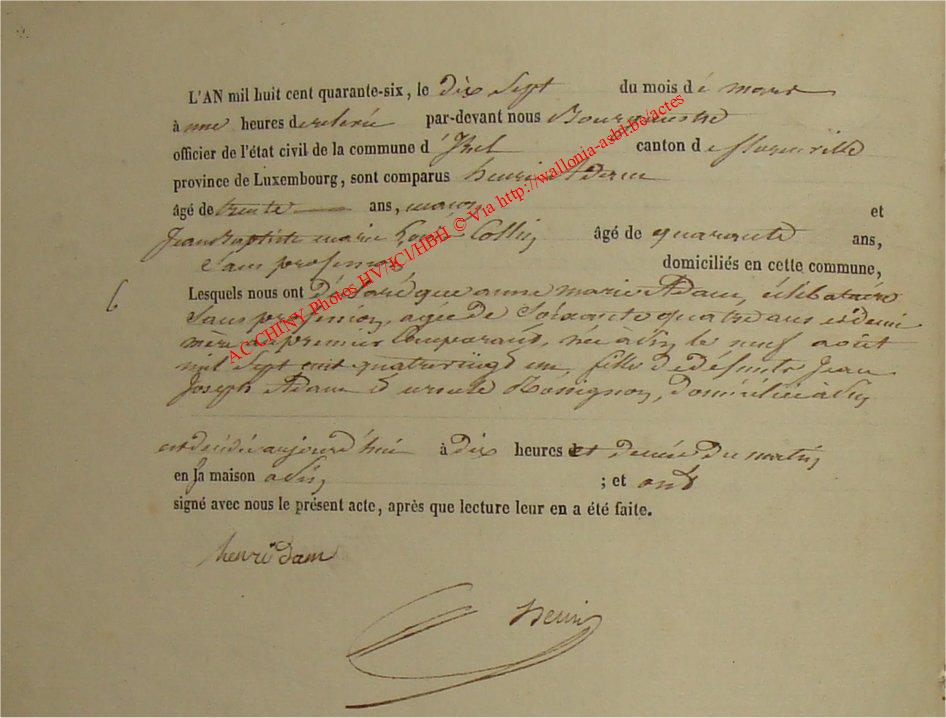 L'AN mil huit cent quarante-six, le dix Sept du mois de mars
à une heures de relevée par-devant nous Bourgmestre
officier de l'état civil de la commune d'Izel canton de florenville
province de Luxembourg, sont comparus henri Adam
âgé de trente ans, maçon et
Jean Baptiste marie Collin âgé de quarante ans,
Sans profession domiciliés en cette commune,
6 Lesquels nous ont déclaré que anne marie Adam, célibataire
Sans profession, agée de Soixante quatre ans et demi
mère du premier Comparant, née à le neuf août
mil Sept cent quatrevingt un, fille de défunts Jean
Joseph Adam Rossignon, domiciliée à
est décédée aujourd'hui à dix heures et demie du matin,
en la maison ; et ont
signé avec nous le présent acte, après que lecture leur en a été faite.
henri dam
AC CHINY Photos HV/JCI/HBH © Via http://wallonia-asbl.be/actes